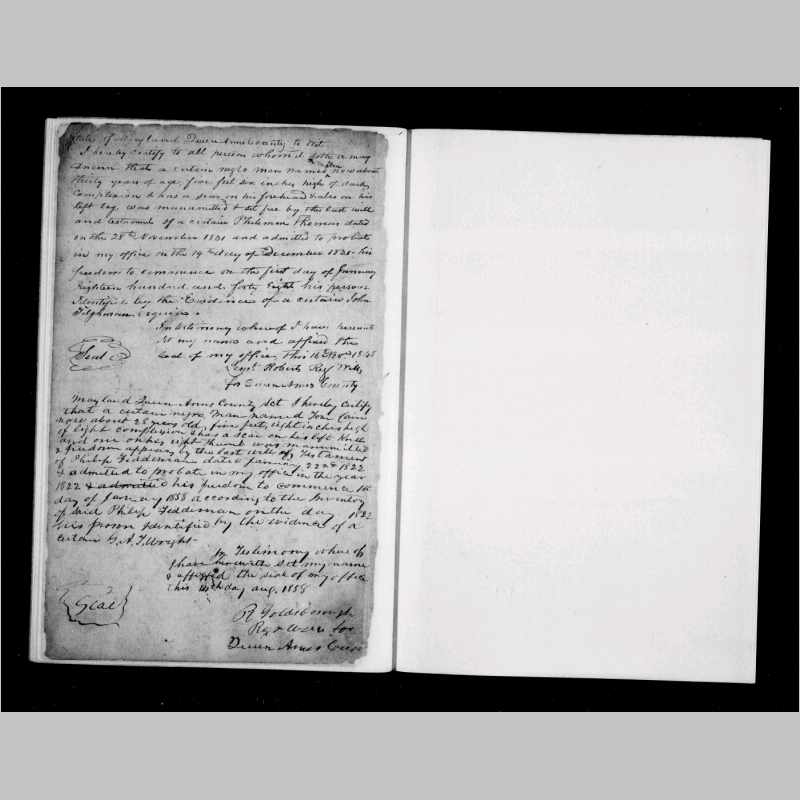 State of Maryland Queen Anns County to Wit
I hereby certify to all person whom it doth or may
Concern that a certain negro man named now about
thirty years of age, five feet six inches high of dark
Complexion & has a scar on his forehead & also on his
left leg. was manumitted & set free by the last will
and testament of a certain Philemon Thomas dated
on the 28th November 1831 and admitted to probate
in my office on the 14th day of December 1831. his
freedom to commence on the first day of January
Eighteen hundred and forty Eight his person
Identified by the Evidence of a certain John
Tilghman Esquire.
In testimony whereof I have hereunto
set my name and affixed the
Seal of my office this 16th
Seal
Roberts Reg Wills
for Queen Anns County
Mayland Queen Anns County Sct I hereby Certify
that a certain negro Man named Tom
now about 28 years old, five feet, eight inches high
of light complexion & has a scar on his left
and one on his right thumb was manumitted
& freedom appears by the last will & Testament
of Philip Feddeman dated January 22nd 1822
& admitted to probate in my office in the year
1822 & admitted his freedom to commence 1st
day of January 1858 according to the Inventory
of said Philip Feddeman on the day 1822
his prson Identified by the evidence of a
certain G. A. T. Wright
In Testimony where of
I have herewith Set my name
& affixed the seal of my office
this day aug. 1858
Seal
R Goldsborough
Regr Wills for
Queen Anns